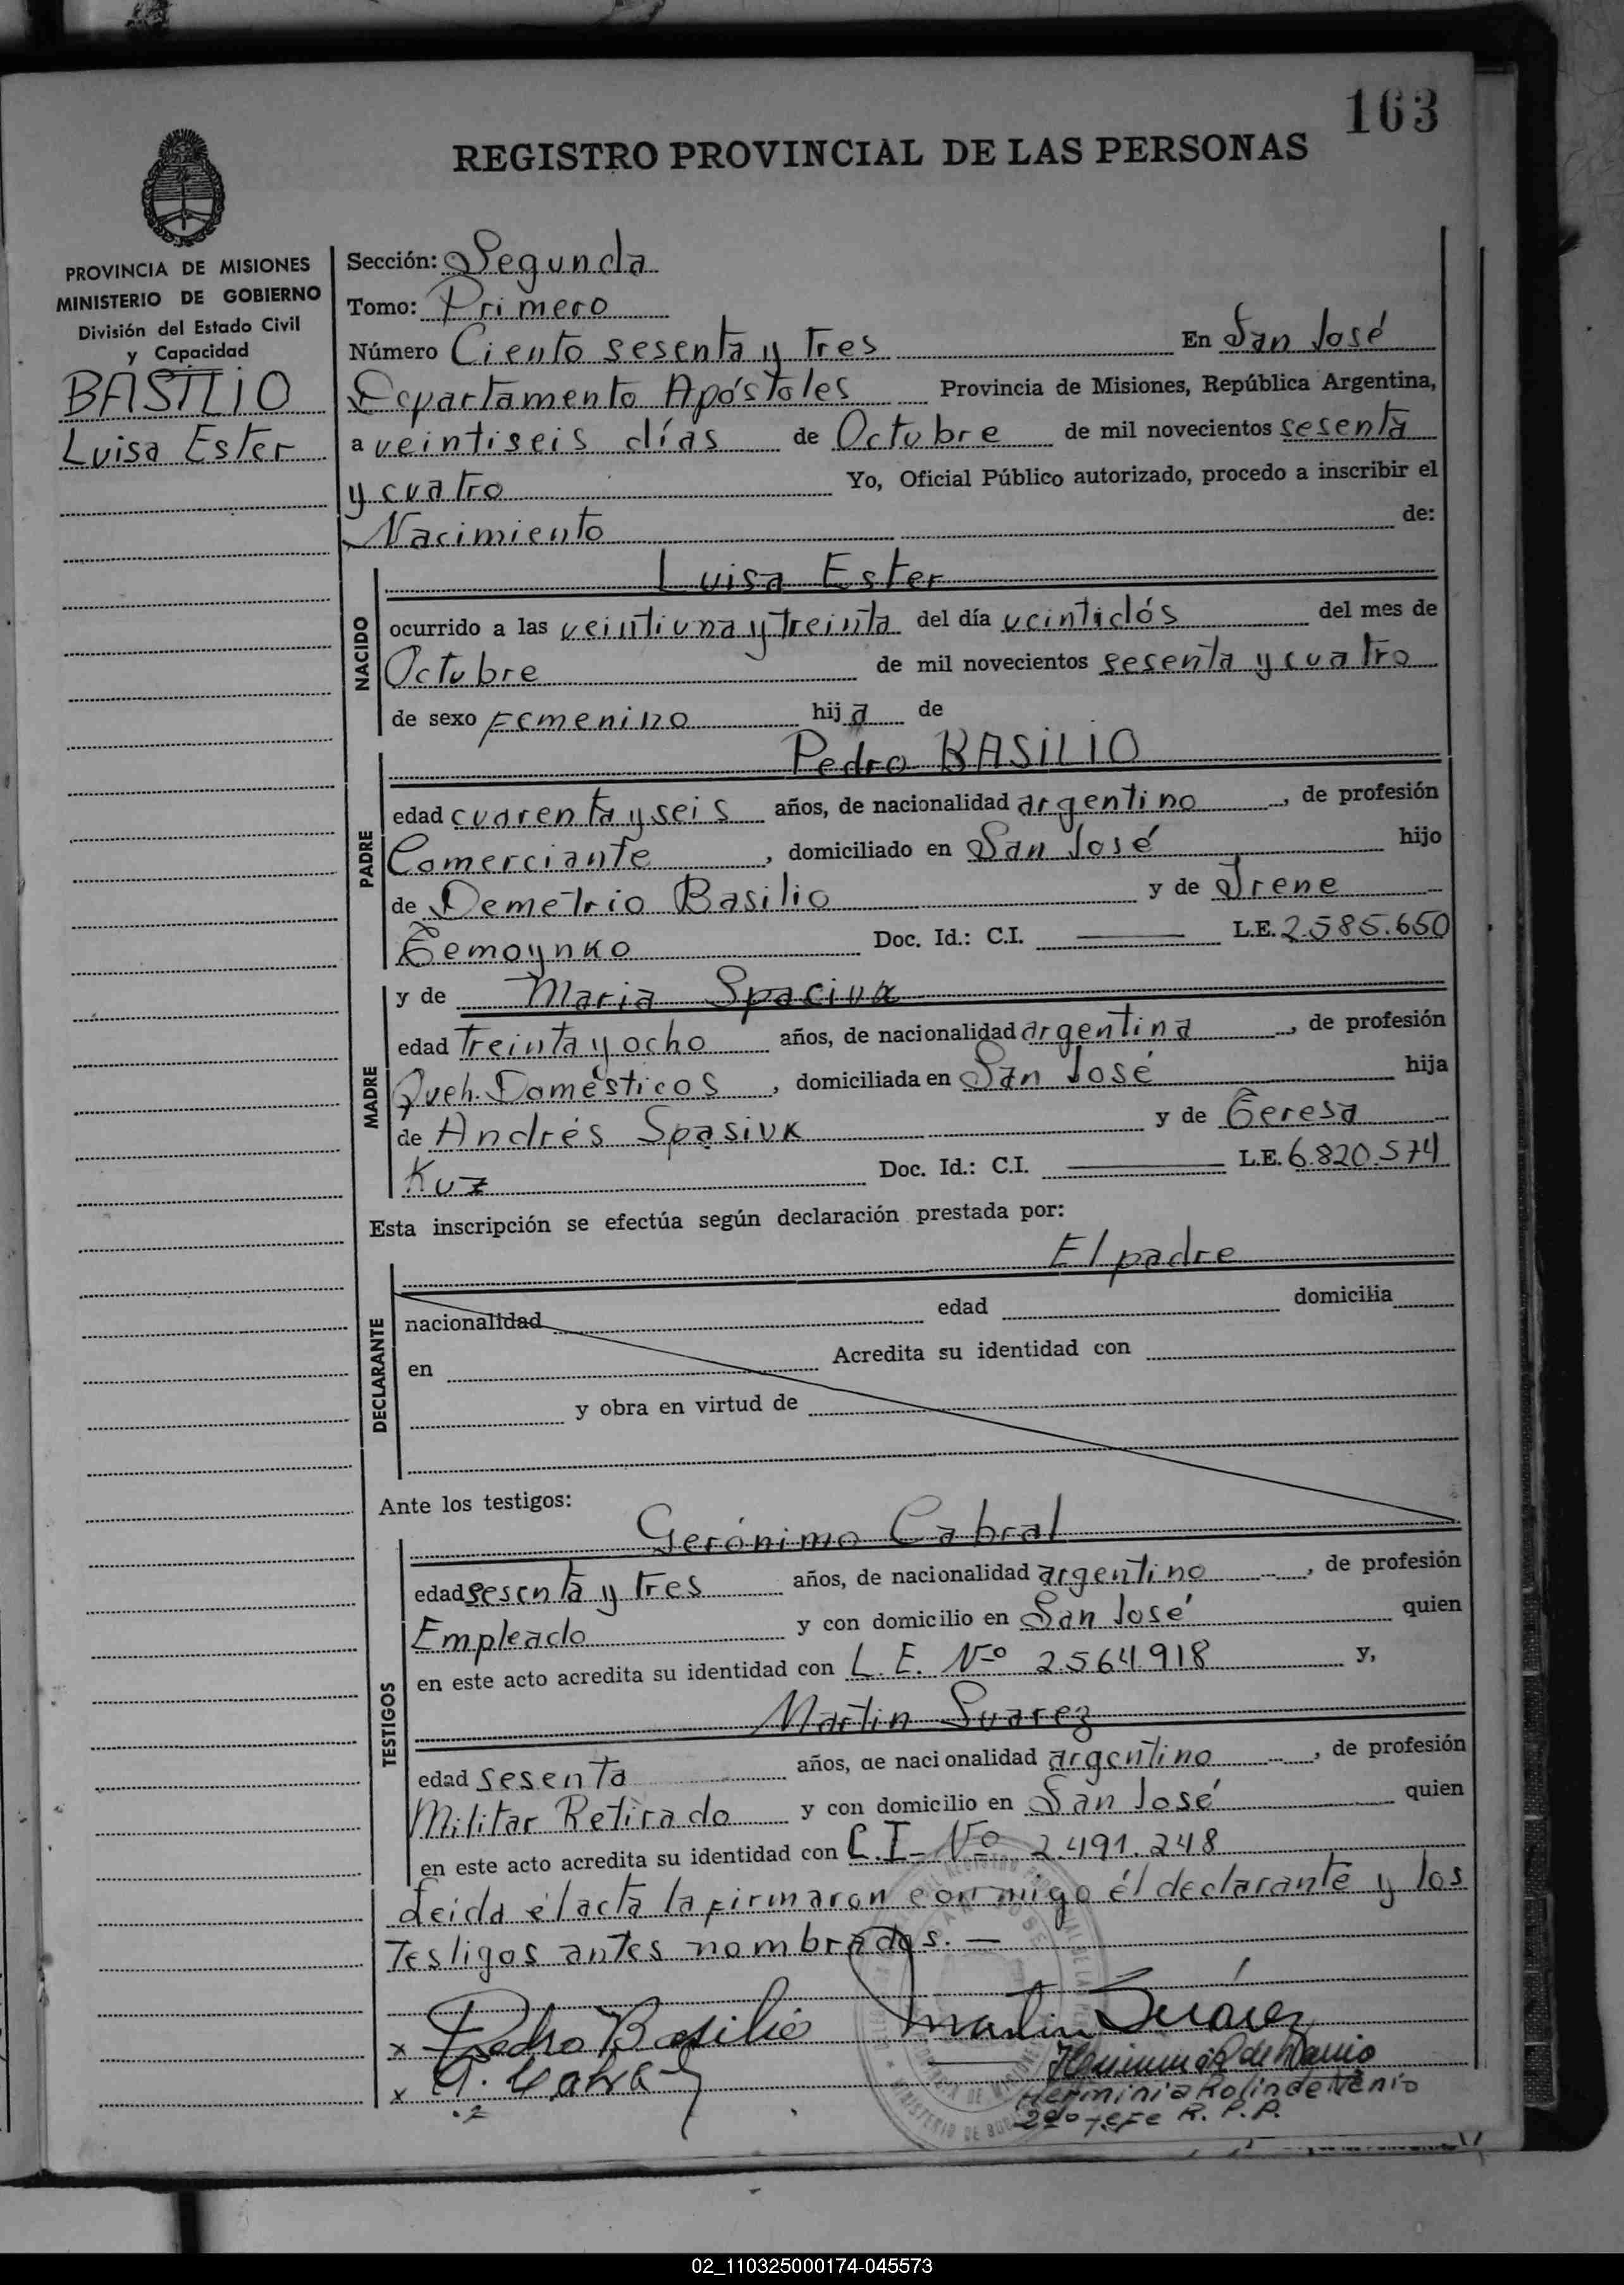 163
REGISTRO PROVINCIAL DE LAS PERSONAS
PROVINCIA DE MISIONES
MINISTERIO DE GOBIERNO
División del Estado Civil
y Capacidad
BASILIO
Luisa Ester
Sección: Segunda
Tomo: Primero
Número Ciento sesenta y tres En San José
Departamento Apóstoles Provincia de Misiones, República Argentina,
a veintiseis días de Octubre de mil novecientos sesenta
y cuatro Yo, Oficial Público autorizado, procedo a inscribir el
Nacimiento de:
NACIDO
Luisa Ester
ocurrido a las veintiuna y treinta del día veintidós del mes de
Octubre de mil novecientos sesenta y cuatro
de sexo Femenino hija de
PADRE
Pedro BASILIO
edad cuarenta y seis años, de nacionalidad argentino, de profesión
Comerciante, domiciliado en San José hijo
de Demetrio Basilio y de Irene
Temoynko Doc. Id.: C.I. L.E. 2.585.650
MADRE
y de Maria Spaciuk
edad treinta y ocho años, de nacionalidad argentina, de profesión
Queh. Domésticos, domiciliada en San José hija
de Andrés Spasiuk y de Teresa
Kuz Doc. Id.: C.I. L.E. 6.820.574
Esta inscripción se efectúa según declaración prestada por:
El padre
DECLARANTE
nacionalidad edad domicilia
en Acredita su identidad con
y obra en virtud de
Ante los testigos:
TESTIGOS
Gerónimo Cabral
edad sesenta y tres años, de nacionalidad argentino, de profesión
Empleado y con domicilio en San José quien
en este acto acredita su identidad con L. E. Nº 2.564.918 y,
Martin Suarez
edad sesenta años, de nacionalidad argentino, de profesión
Militar Retirado y con domicilio en San José quien
en este acto acredita su identidad con C.I. Nº 2.491.248
Leida el acta la firmaron conmigo él declarante y los
Testigos antes nombrados.—
x Pedro Basilio Martin Suárez
x G. Cabral
Herminia Rolin de Venio
2do Jefe R. P. P.
02_110325000174-045573